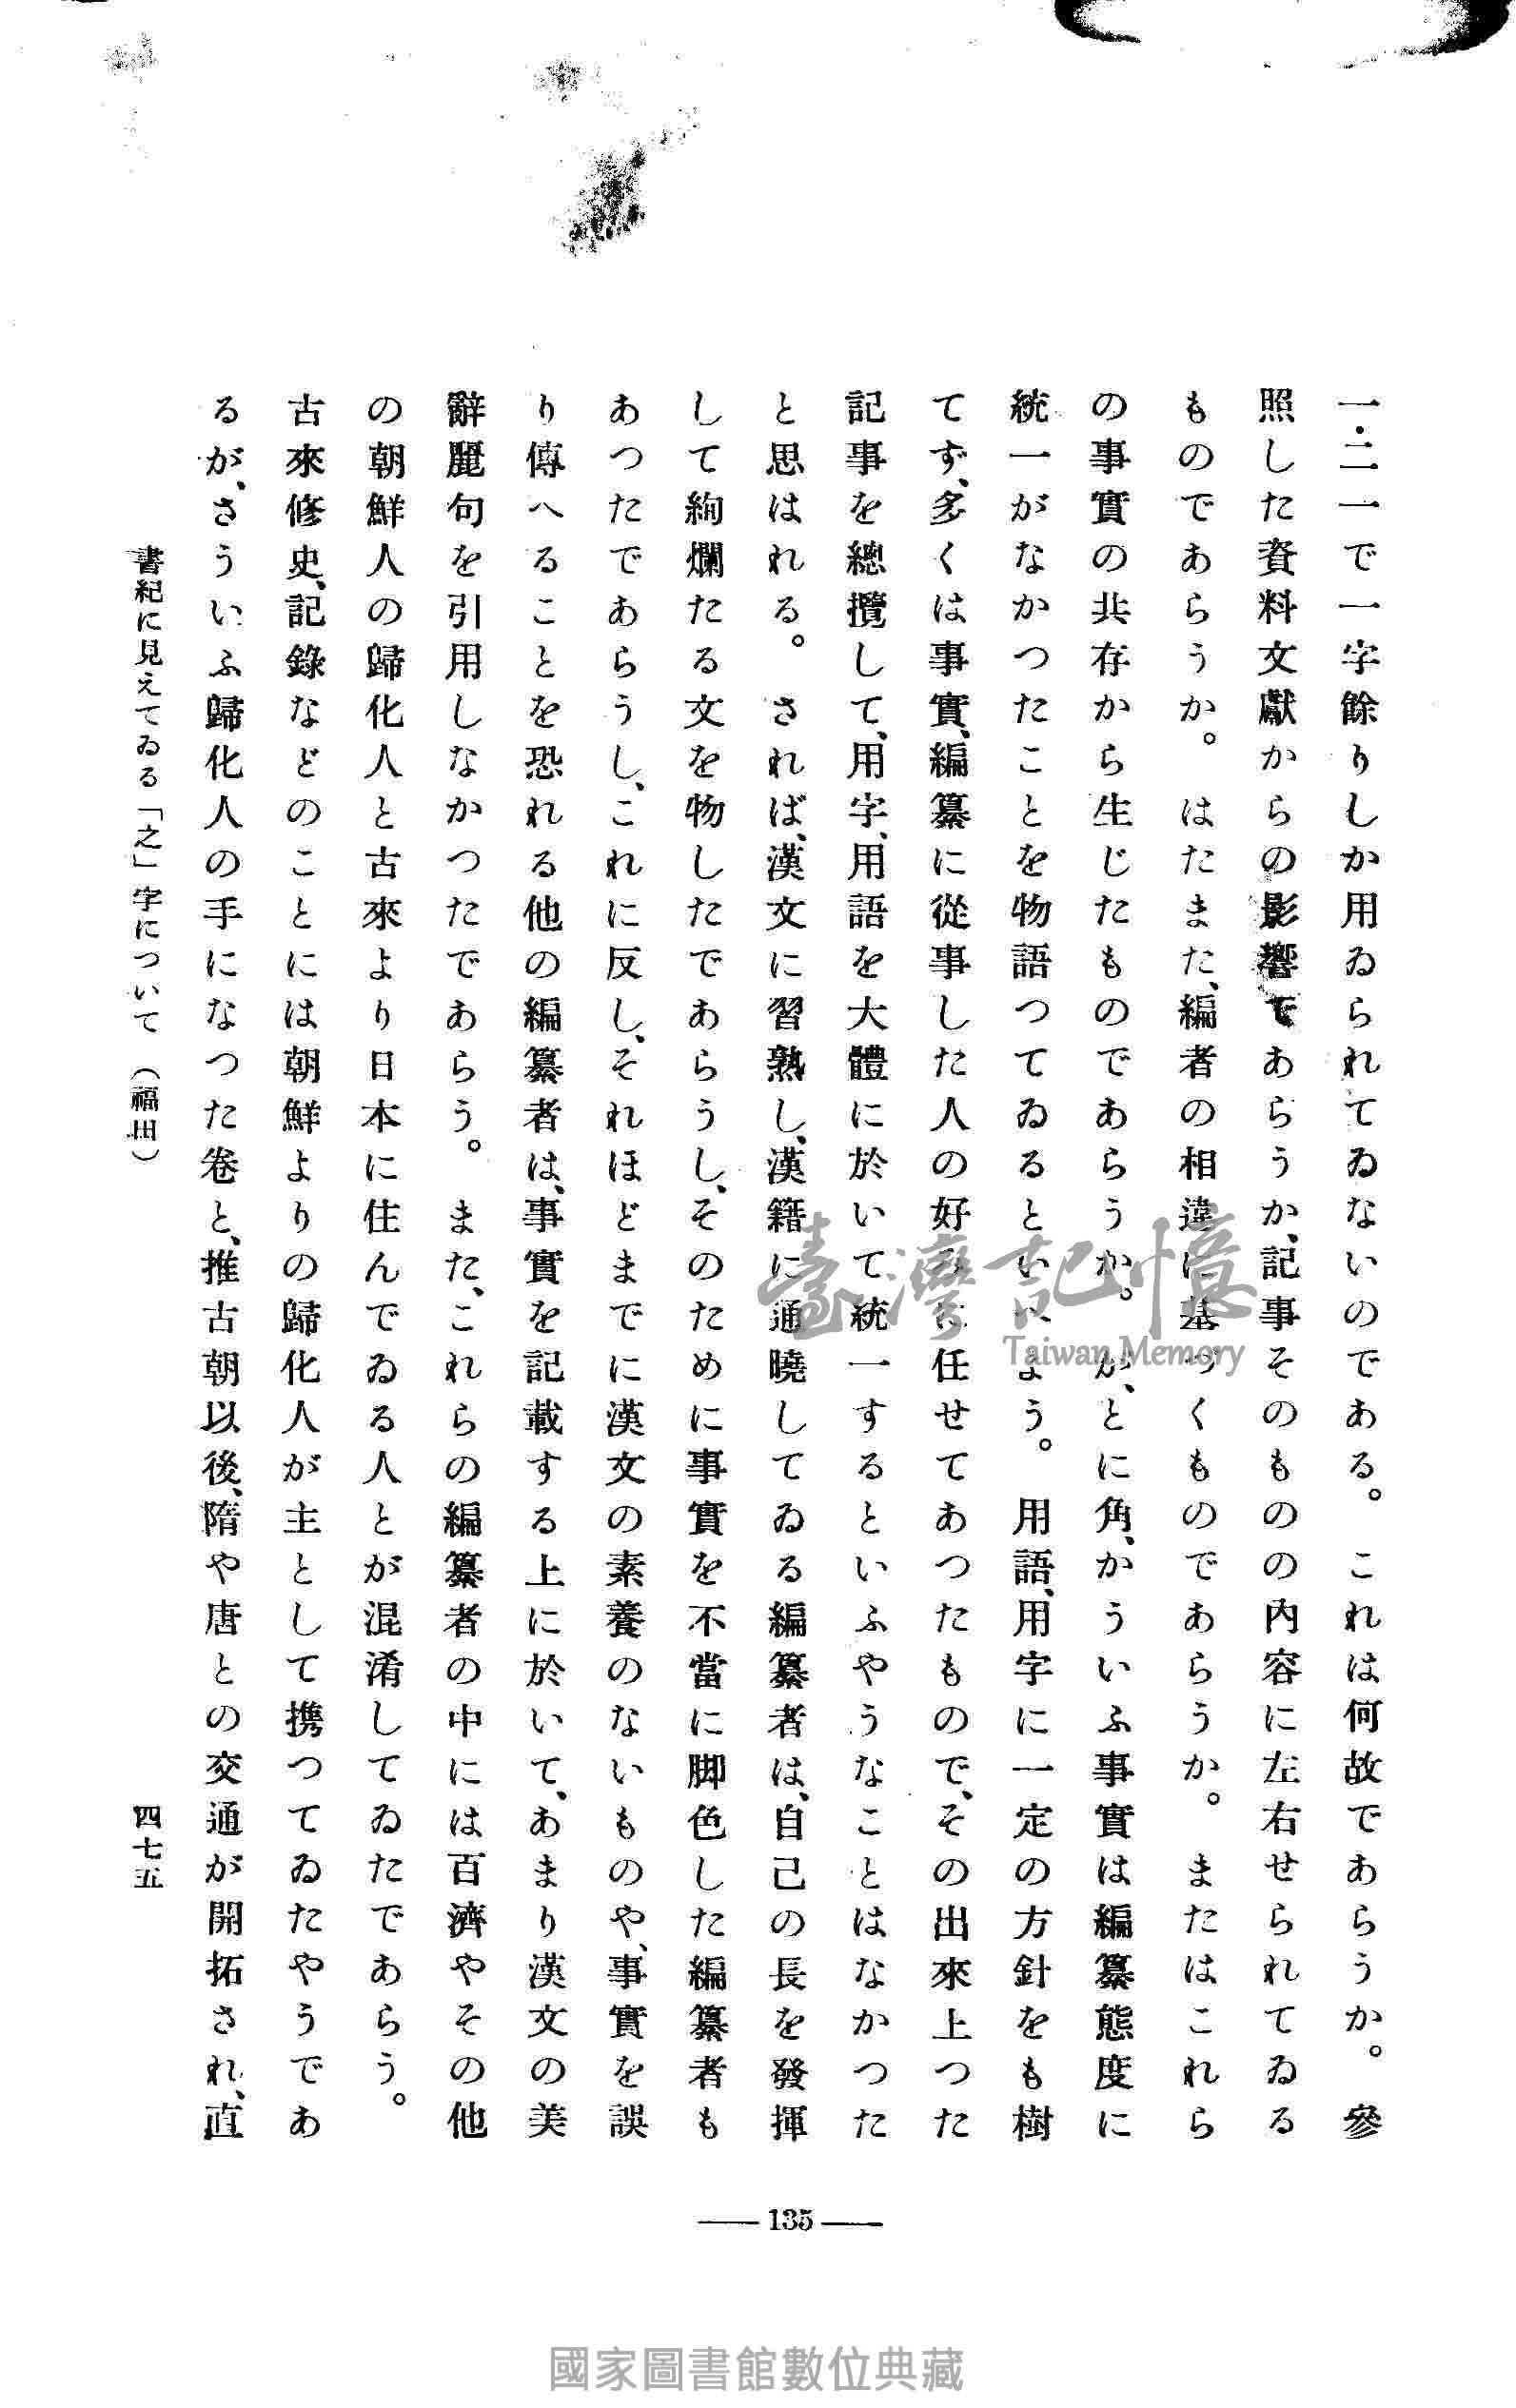 一・二一で一字餘りしか用ゐられてゐないのである。 これは何故であらうか。 參
照した資料文獻からの影響であらうか、記事そのものの內容に左右せられてゐる
ものであらうか。 はたまた、編者の相違に基づくものであらうか。 またはこれら
の事實の共存から生じたものであらうか。が、とに角、かういふ事實は編纂態度に
統一がなかつたことを物語つてゐるといへよう。 用語、用字に一定の方針をも樹
てず、多くは事實、編纂に從事した人の好みに任せてあつたもので、その出來上つた
記事を總攬して、用字、用語を大體に於いて統一するといふやうなことはなかつた
と思はれる。 されば、漢文に習熟し、漢籍に通曉してゐる編纂者は、自己の長を發揮
して絢爛たる文を物したであらうし、そのために事實を不當に脚色した編纂者も
あつたであらうし、これに反し、それほどまでに漢文の素養のないものや、事實を誤
り傳へることを恐れる他の編纂者は、事實を記載する上に於いて、あまり漢文の美
辭麗句を引用しなかつたであらう。 また、これらの編纂者の中には百濟やその他
の朝鮮人の歸化人と古來より日本に住んでゐる人とが混淆してゐたであらう。
古來修史、記錄などのことには朝鮮よりの歸化人が主として携つてゐたやうであ
るが、さういふ歸化人の手になつた卷と、推古朝以後、隋や唐との交通が開拓され、直
書紀に見えてゐる「之」字について （福田） 四七五
— 135 —
臺灣記憶
Taiwan Memory
國家圖書館數位典藏